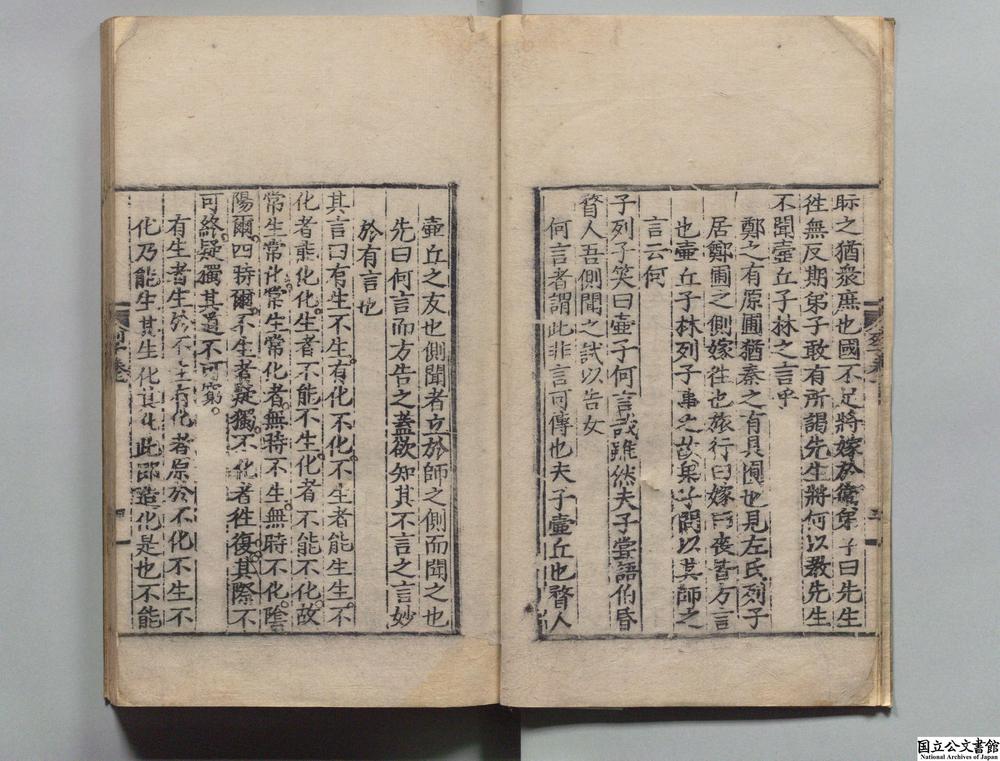 眎之猶衆庶也國不足將嫁於衞弟子曰先生
徃無反期弟子敢有所謁先生將何以教先生
不聞壷丘子林之言乎
鄭之有原圃猶秦之有具圃也見左氏列子
居鄭圃之側嫁徃也旅行曰嫁曰夜皆方言
也壷丘子林列子事之故弟子問以其師之
言云何
子列子笑曰壷子何言哉雖然夫子嘗語伯昏
瞀人吾側聞之試以告女
何言者謂此非言可傳也夫子壷丘也瞀人
壷丘之友也側聞者立於師之側而聞之也
先曰何言而方告之蓋欲知其不言之言妙
於有言也
其言曰有生不生有化不化不生者能生生不
化者能化化生者不能不生化者不能不化故
常生常化常生常化者無時不生無時不化陰
陽爾四時爾不生者疑獨不化者徃復其際不
可終疑獨其道不可窮
有生者生於不生有化者原於不化不生不
化乃能生其生化其化此即造化是也不能
四
国立公文書館
National Archives of Japan